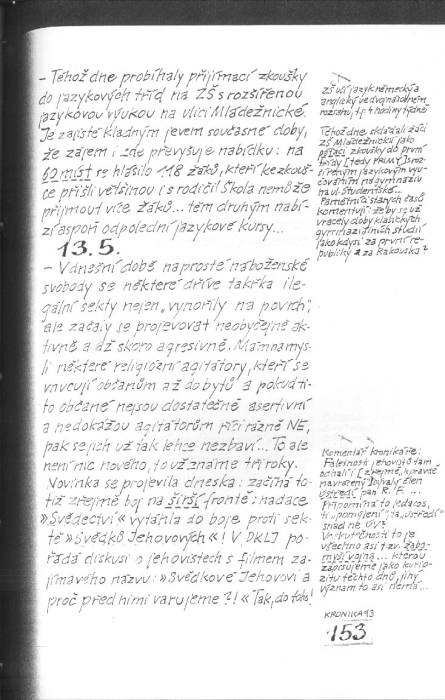 – Téhož dne probíhaly přijímací zkoušky
do jazykových tříd na ZŠ s rozšířenou
jazykovou výukou na ulici Mládežnické.
Je zajisté kladným jevem současné doby,
že zájem i zde převyšuje nabídku: na
60 míst se hlásilo 118 žáků, kteří ke zkouš-
ce přišli většinou i s rodiči! Škola nemůže
přijmout více žáků... těm druhým nabí-
zí aspoň odpolední jazykové kursy...
13.5.
– V dnešní době naprosté náboženské
svobody se některé dříve takřka ile-
gální sekty nejen „vynořily na povrch",
ale začaly se projevovat neobyčejně ak-
tivně a až skoro agresivně. Mám na mys-
li některé religiózní agitátory, kteří se
vnucují občanům až do bytů a pokud ti-
to občané nejsou dostatečně asertivní
a nedokážou agitátorům říci rázné NE,
pak se jich už tak lehce nezbaví... To ale
není nic nového, to už známe tři roky.
Novinka se projevila dneska: začíná to-
tiž zřejmě boj na širší frontě: nadace
»Svědectví« vytáhla do boje proti sek-
tě »Svědků Jehovových«! V DKLJ po-
řádá diskusi o jehovistech s filmem za-
jímavého názvu: »Svědkové Jehovovi a
proč před nimi varujeme?!« Tak, do toho!
ZŠ učí jazyk německý a
anglický ve dvojnásobném
rozsahu, tj. 4 hodiny týdně
Téhož dne skládali žáci
ZŠ Mládežnická jako
zkoušky do první
třídy [tedy PRIMY] s roz-
šířeným jazykovým vyu-
čováním na gymnáziu
na ul. Studentské...
Pamětníci starých časů
komentují: že by se už
vracely doby klasických
gymnaziálních studií
jako kdysi za první re-
publiky a za Rakouska?
Komentář kronikáře:
odhalil i [zřejmě správně
navrácený] bývalý člen
ústředí pan R. F. ...
Připomíná to ledacos,
snad ne ÚV?
Ve skutečnosti to je
všechno asi tzv.
kterou
zapisujeme jako kurio-
zitu těchto dnů, jiný
význam to asi nemá...
KRONIKA 93
153